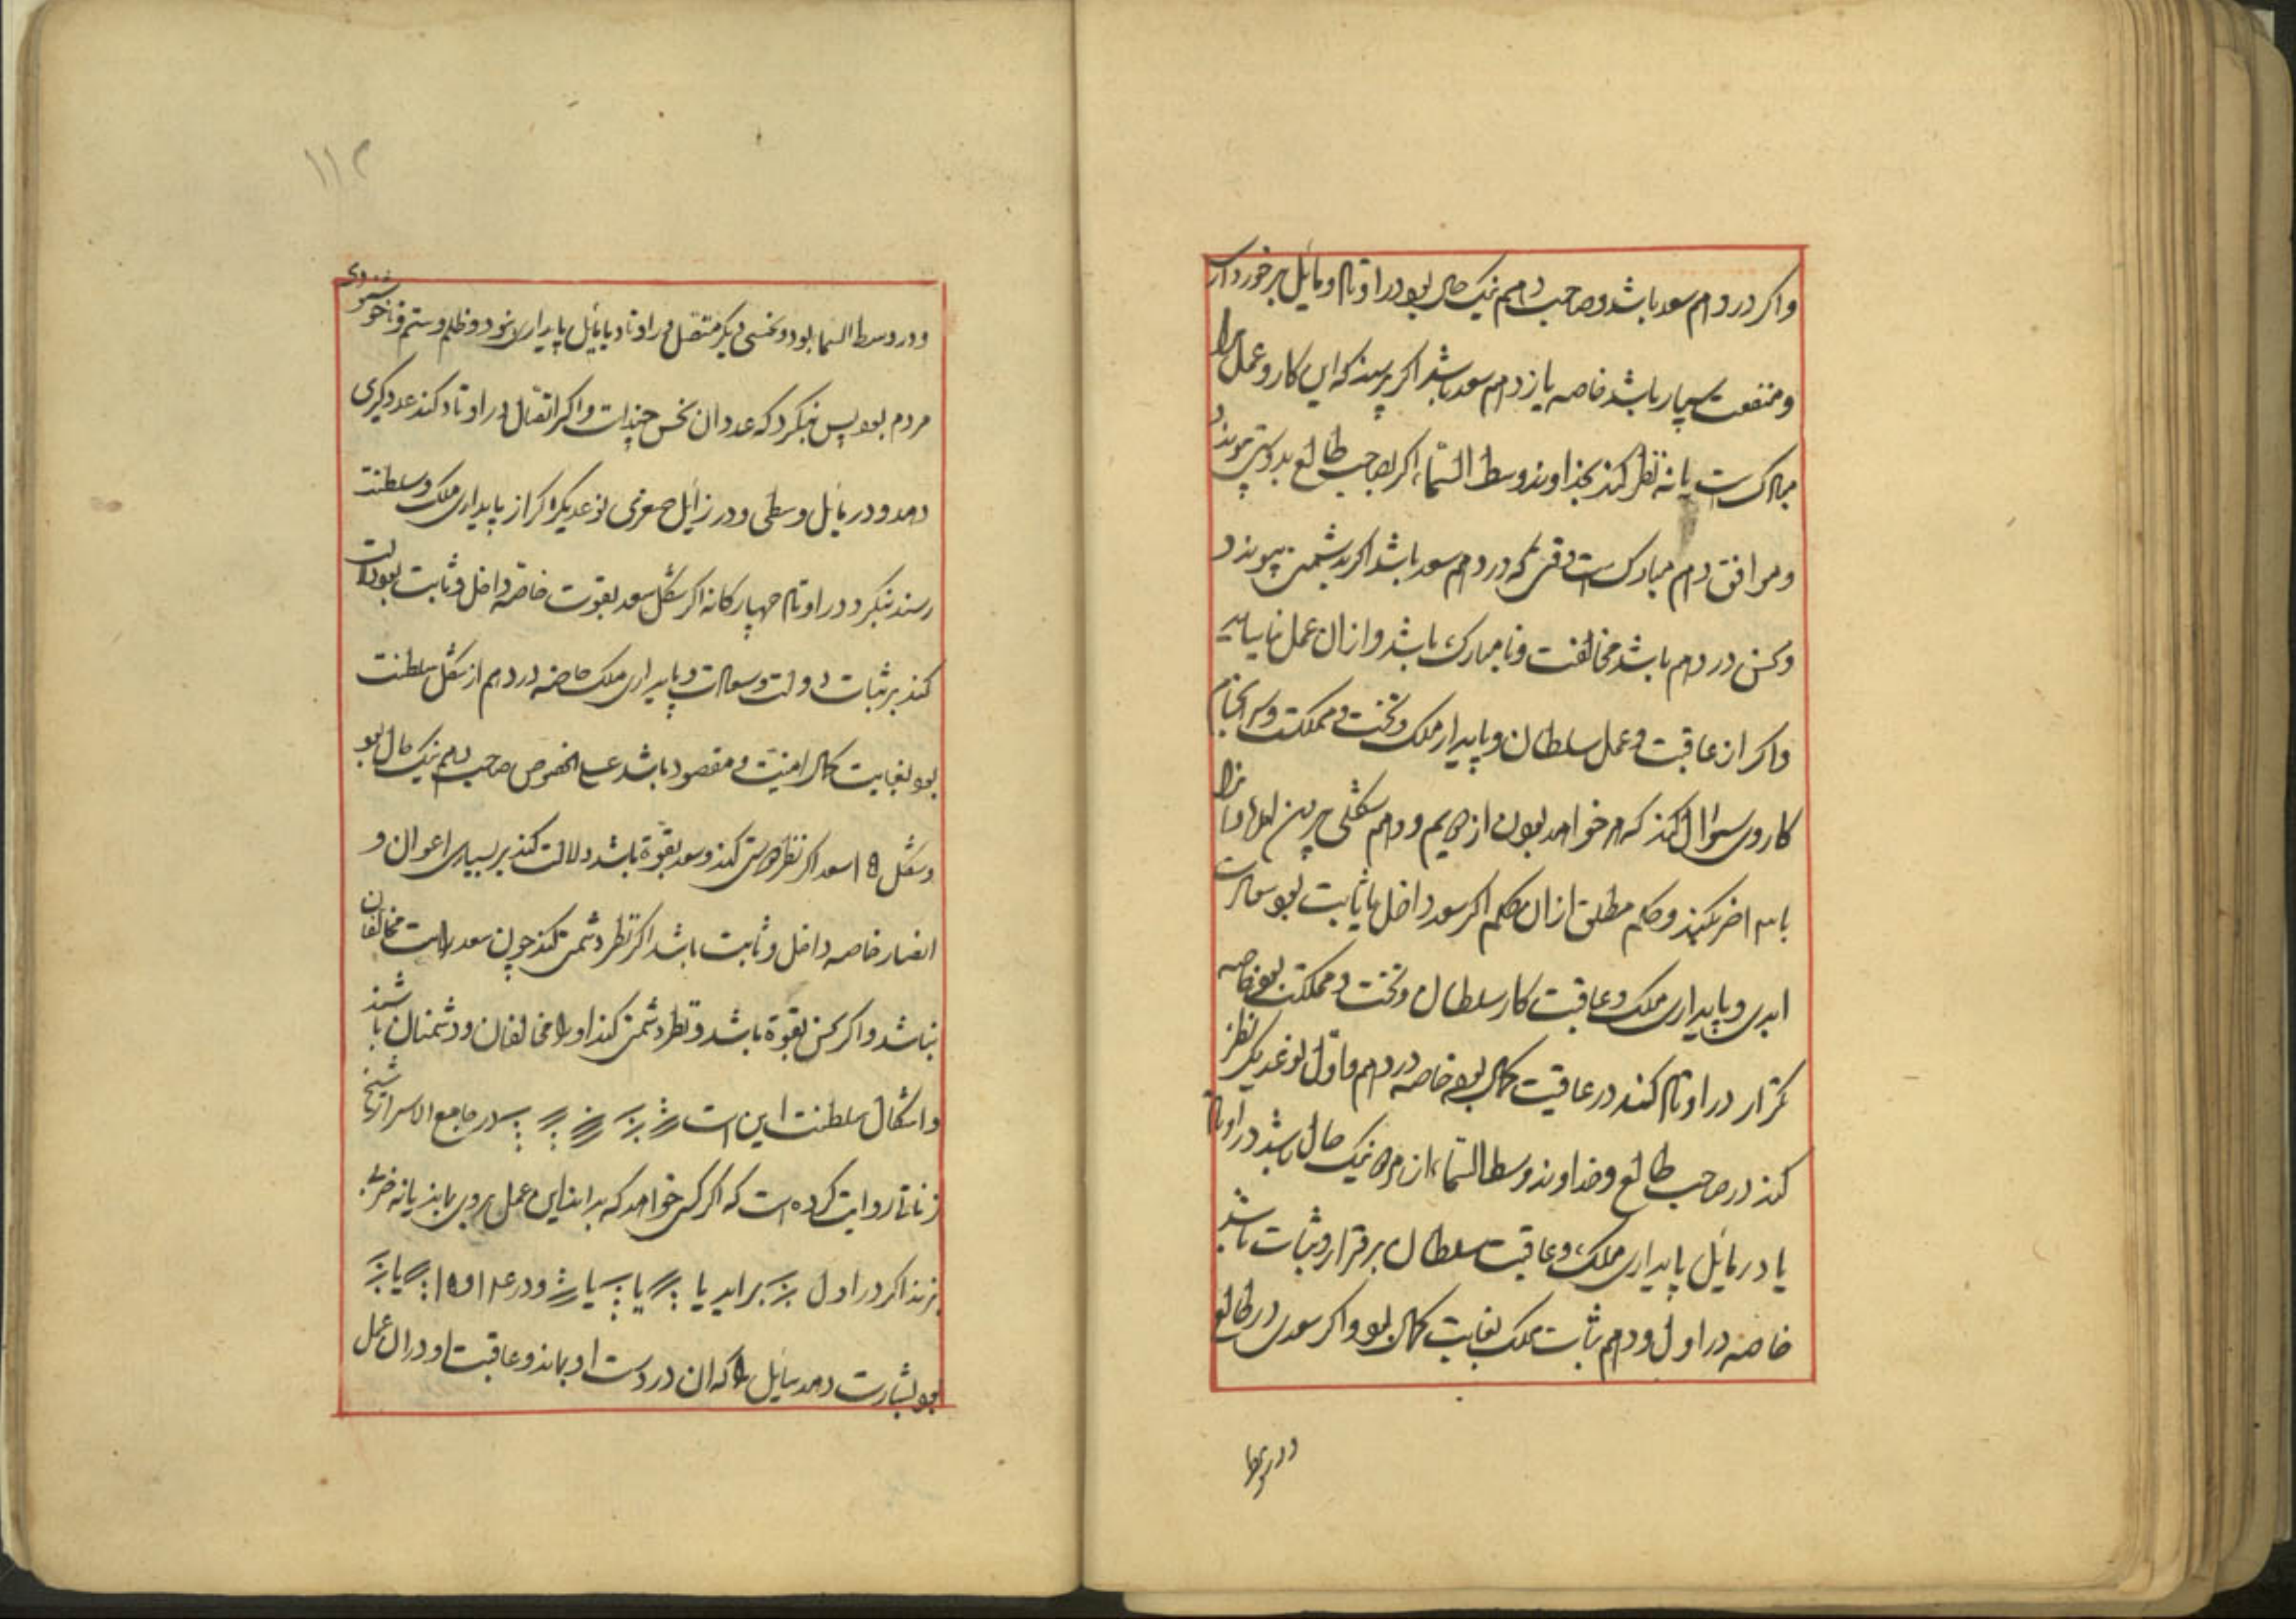 واکر در دهم سعد باشد و صاحب دهم نیک حال بود در اوتاد و مایل برخورداری
و منفعت بسیار باشد خاصه یازدهم سعد باشد اکر پرسند که این کار و عمل مرا
مبارک است یا نه نظر کند بخداوند وسط السماء اکر بصاحب طالع بدوستی پیوندد
و موافق دهم مبارک است وقتی که در دهم سعد باشد اکر بدشمنی پیوندد
و نحس در دهم باشد مخالفت و نامبارک باشد و از ان عمل نیاساید
واکر از عاقبت و عمل سلطان و پایدار ملک و تخت و مملکت و سرانجام
کار وی سؤال کند که خواهد بودن از یکم و دهم شکلی بیرون
اخر بکیرند و حکم مطلق از ان اکر سعد داخل یا ثابت بود سعادت
ابدی و پایداری ملک و عاقبت کار سلطان و تخت و مملکت بود خاصه
تکرار در اوتاد کند در عاقبت کمال بود خاصه در دهم و اول نوعدیکر نظر
کند در صاحب طالع و خداوند وسط السماء از هر دو نیک حال باشد در اوتاد
یا در مایل پایداری ملک و عاقبت سلطان برقرار و ثبات باشد
خاصه در اول و دهم ثبات ملک بغایت کمال بود و اکر سعدی در طالع
۱۱۲
و در وسط السما بود و نحسی دیکر متصل در اوتاد یا مایل پایداری نبود و ظلم و ستم و ناخوشنودی
مردم بود پس بنکرد که عدد ان نحس چند است و اکر انتقال در اوتاد کند عدد کبری
دهد و در مایل وسطی و در زایل صغری نوعدیکر اکر از پایداری ملک و سلطنت
رسند بنکرد در اوتاد چهارکانه اکر شکل سعد بقوت خاصه داخل و ثابت بود دلالت
کند بر ثبات دولت و سعادت و پایداری ملک خاصه در دهم از شکل سلطنت
بود بغایت کمال امنیت و مقصود باشد علی الخصوص صاحب دهم نیک حال بود
و شکل ۱۵ سعد اکر نظر دوستی کند و سعد بقوة باشد دلالت کند بر بسیاری اعوان و
انصار خاصه داخل و ثابت باشد اکر نظر دشمنی کند چون سعد است مخالفان
نباشد و اکر نحس بقوة باشد و نظر دشمنی کند او را مخالفان و دشمنان باشند
و اشکال سلطنت این است در جامع الاسرار شیخ
زناتی روایت کرده است که اکر کسی خواهد که بداند این عمل بروی بماند یا نه
بزند اکر در اول براید یا یا یا و در ۱۴ و ۱۵ یا
بود بشارت دهد سایل را که ان در دست او بماند و عاقبت او در ان عمل